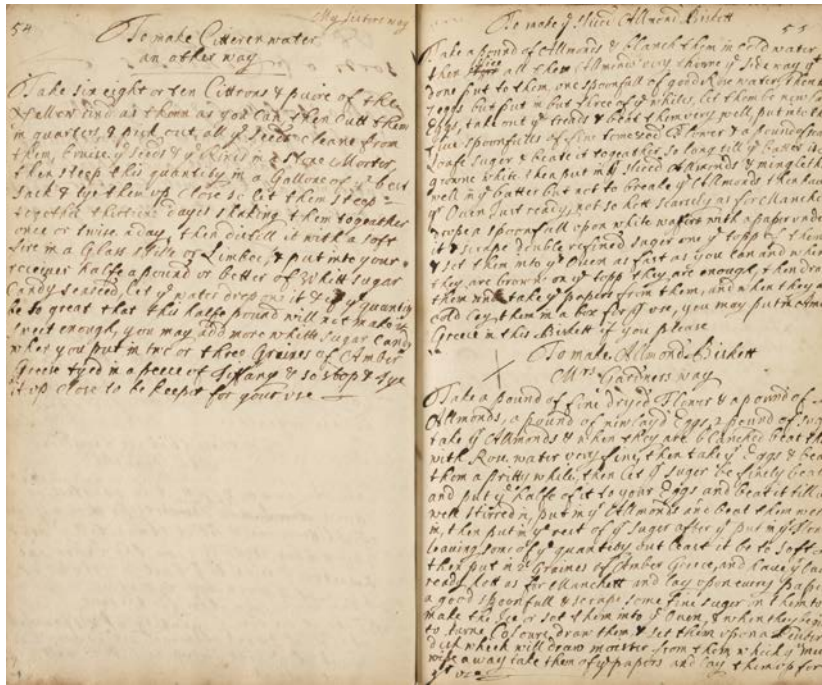 54
My sisters way
To make Citteren water
an other way
Take six eight or ten Cittrons & paire of the
yellow rind as thinn as you can then Cutt them
in quarters & pick out all yͤ seeds cleane from
them, bruise yͤ seeds & yͤ rinds in a stone Morter
then steep this quantity in a Gallone of yͤ best
sack & tye them up close so let them steep
together thirteine dayes shaking them togeather
once or twise a day, then distill it with a soft
fire in a Glass still or Limbec, & put into your
receiver halfe a pound or better of Whitt sugar
Candy seaseed, let yͤ water drop on it & if yͤ quantity
be so great that this halfe pound will not make it
sweet enough, you may add more whitte sugar Candy
when you put in two or three Graines of Amber
Greece tyed in a peece of Tiffany & so stop & tye
it up close to be keept for your use
55
To make yͤ sliced Allmond Biskett
Take a pound of Allmonds & blanch them in cold water
then slice all them Allmonds very thinne yͤ side way yͭ
done put to them one spoonfull of good Rose water, then
7 eggs but put in but three of yͤ whites, let them be new laid
Eggs, take out yͤ treads & beat them very well, put into
five spoonfulls of fine Flower & a pound of
Loafe suger & beate it togeather so long till yͤ batter is
growne white then put in yͤ sliced Allmonds & mingle them
well in yͤ batter but not to breake yͤ Allmonds then have
yͤ Oven Just ready, not so hott scarsely as for Manchet
drope a spoonfull upon white wafers with a paper under
it & scrape double refined suger one yͤ topp of them
& set them into yͤ Oven as fast as you can and when
they are browne on yͤ topp they are enough, then draw
them and take yͤ papers from them, and when they are
cold lay them in a box for yͬ use, you may put in Amber
Greece in this Biskett if you please
To make Allmond Biskett
Mrs Gardners way
Take a pound of fine dryed Flower & a pound of
Allmonds, a pound of new layd Eggs, 2 pound of sugar
take yͤ Allmonds & when they are blanched beat them
with Rose water very fine, then take yͤ Eggs & beat
them a pritty while, then let yͤ suger be finely beaten
and put yͤ halfe of it to your Eggs and beat it till
well stirred in, put in yͤ Allmonds and beat them well
in, then put in yͤ rest of yͤ suger after yͭ put in yͤ Flower
leaving some of yͤ quantity out least it be to soft
then put in 2 Graines of Amber Greece, and have yͤ Oven
ready hott as for Manchett and lay upon every paper
a good spoonfull & scrape some fine suger on them to
make the Ice so set them into yͤ Oven, & when they begin
to turne Coloure draw them, & set them upon a
dish which will draw moister from them which yͤ
wise away take them of yͤ papers and lay them up for
yͬ use